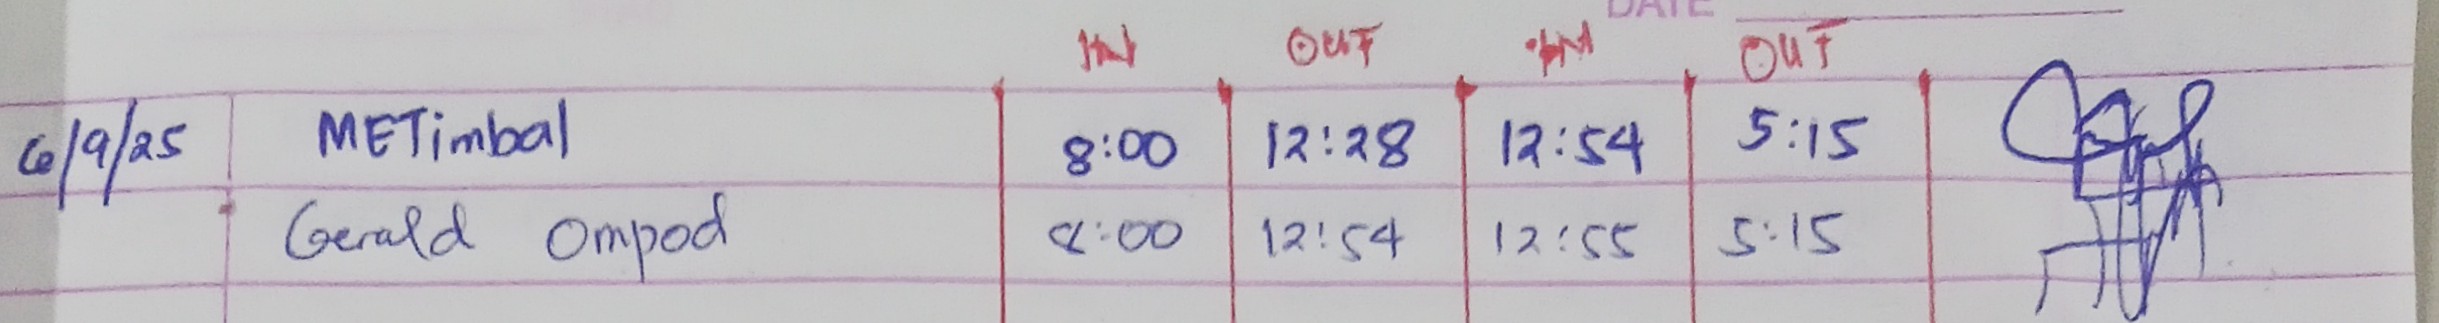 DATE
IN OUT IN OUT
6/9/25 METimbal 8:00 12:28 12:54 5:15
Gerald Ompod 8:00 12:54 12:55 5:15